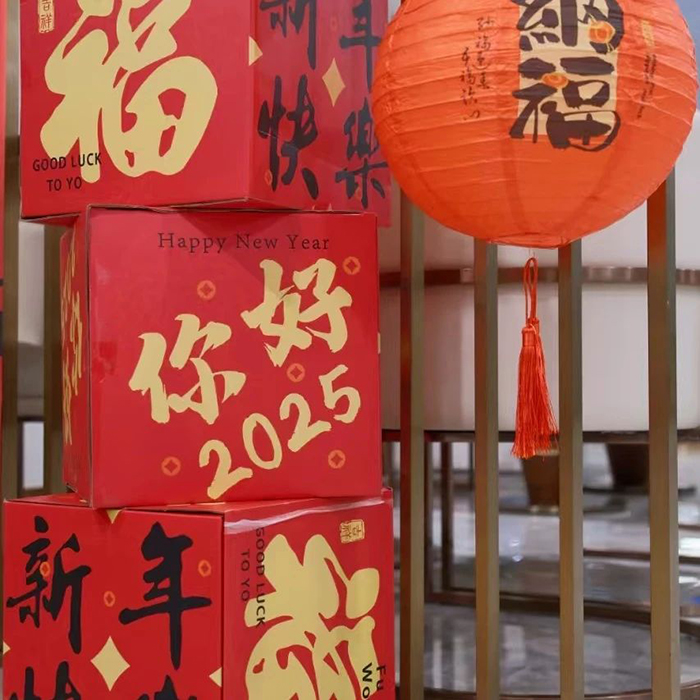 吉祥
福
GOOD LUCK
TO YO
新年
快樂
納
福
Happy New Year
你好
2025
新年
快
GOOD LUCK
TO YO
Fu
Wo